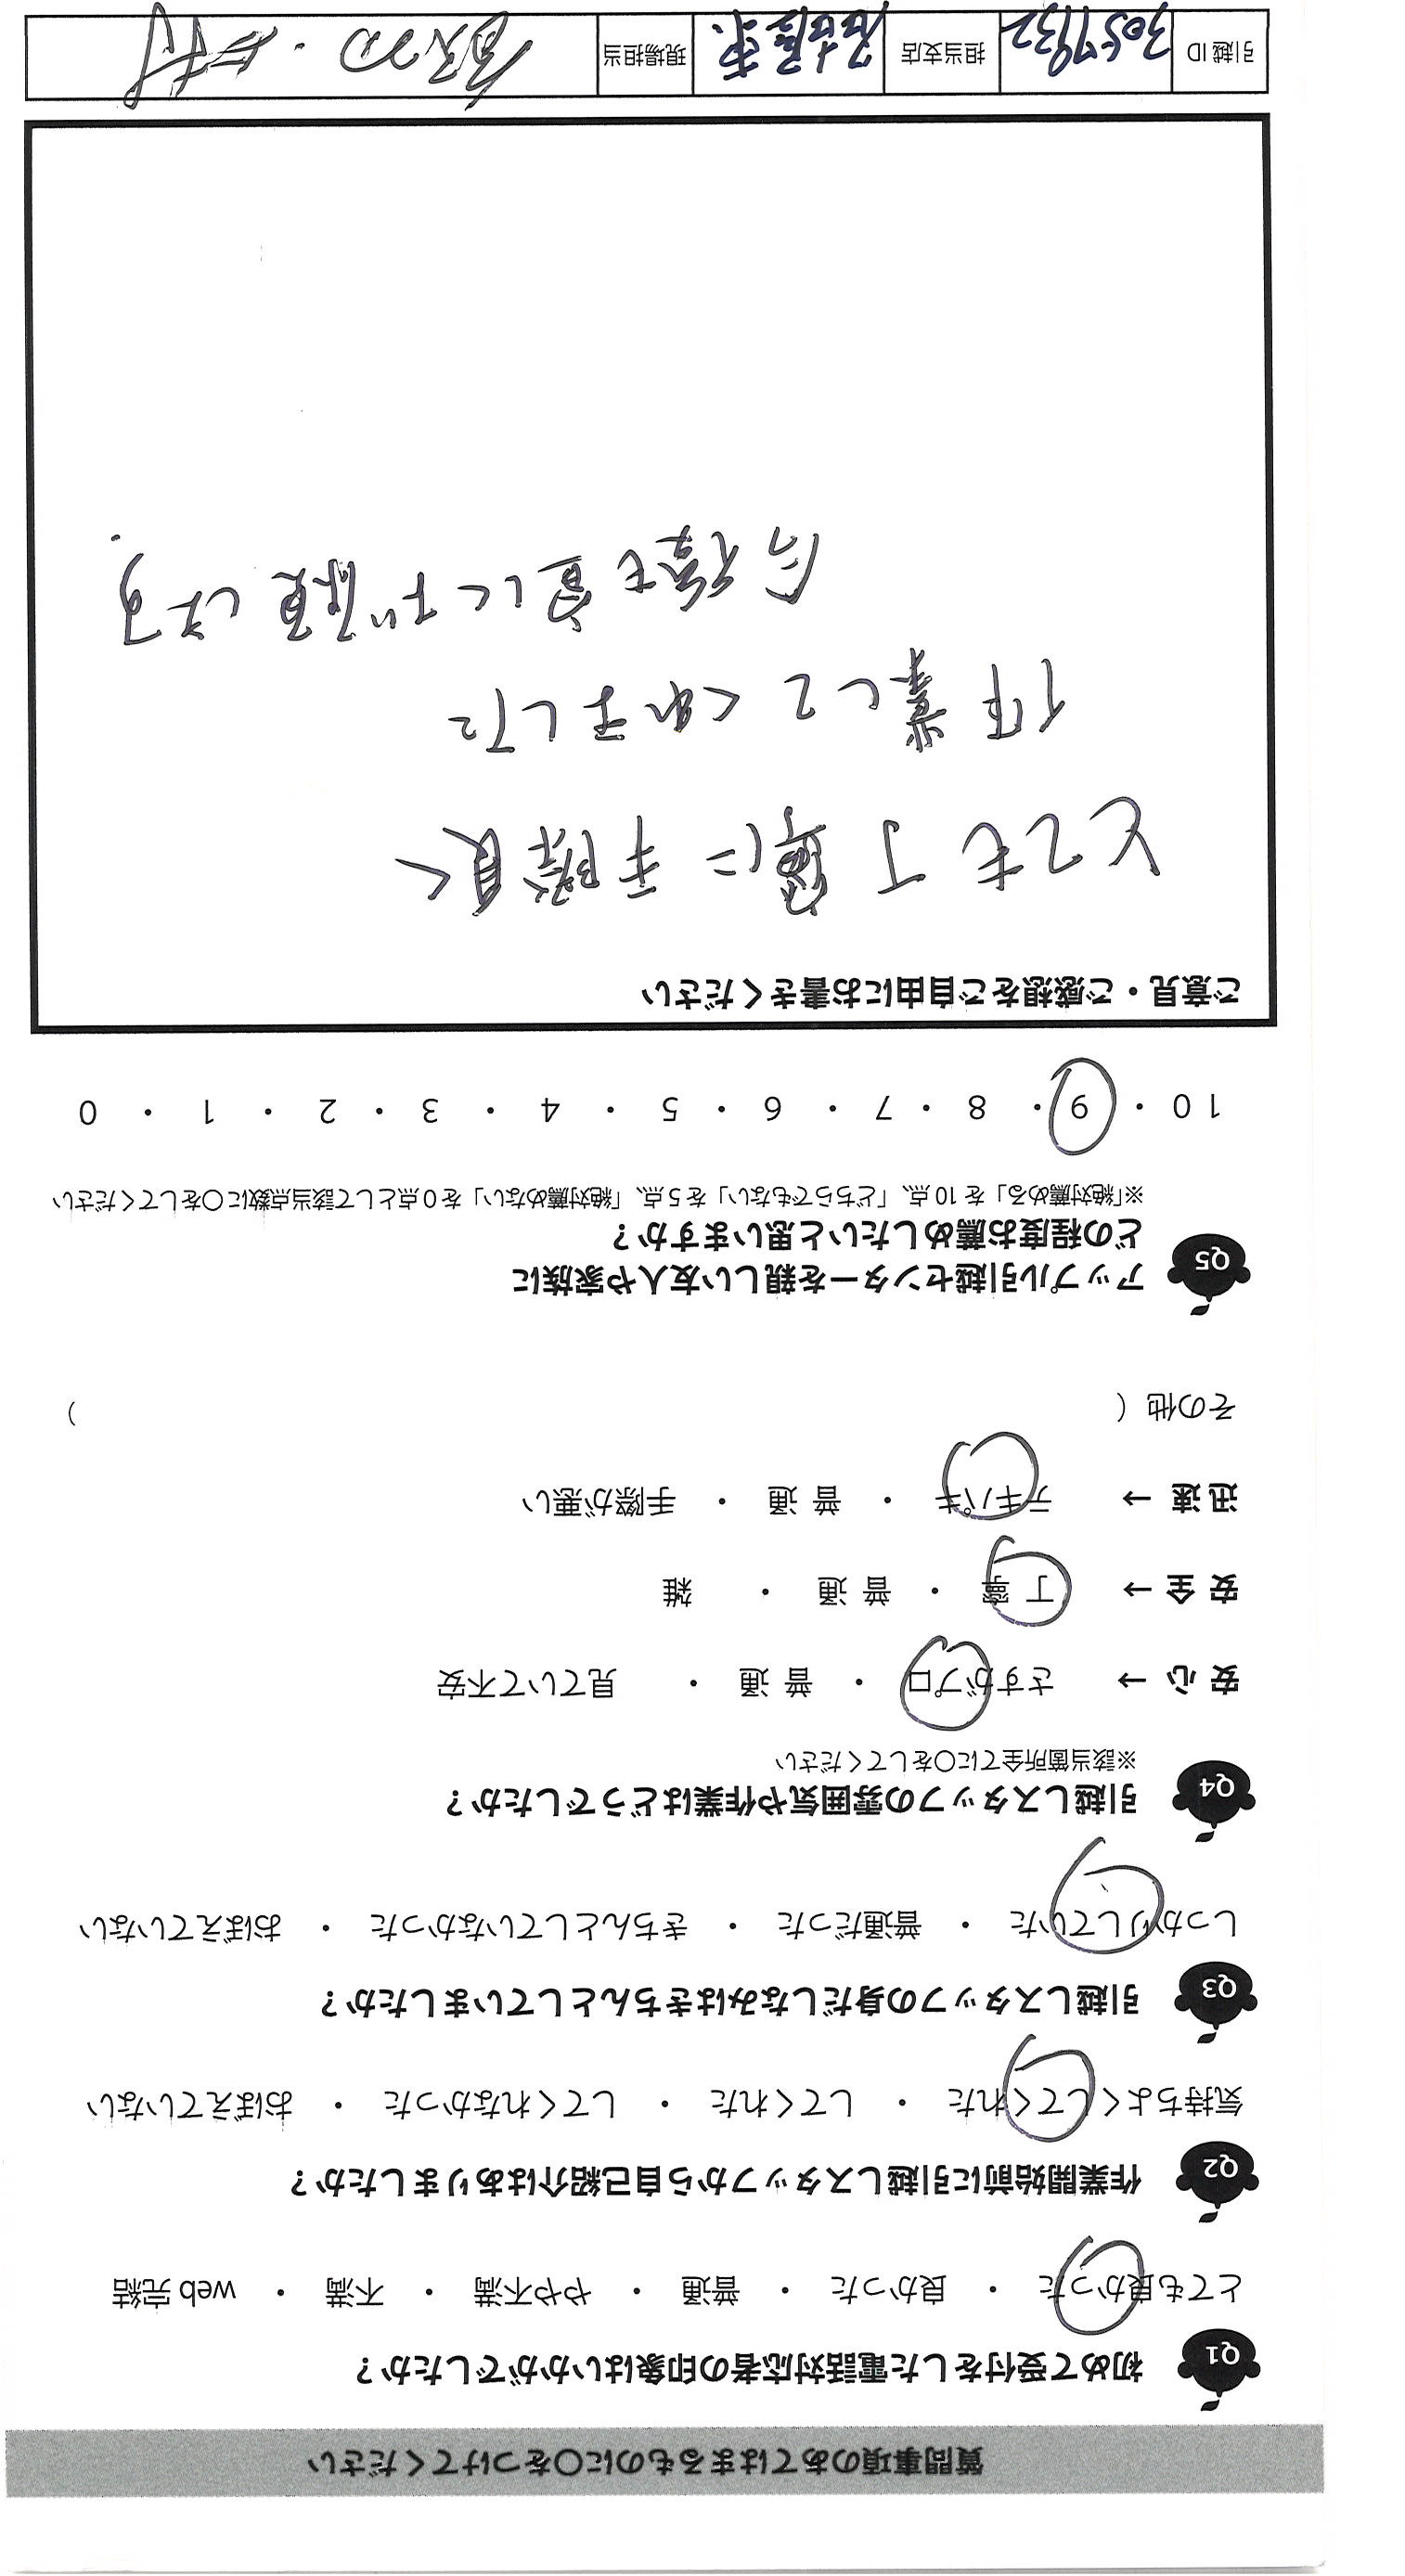 質問事項のあてはまるものに〇をつけてください
Q1 初めて受付をした電話対応者の印象はいかがでしたか?
とても良かった ・ 良かった ・ 普通 ・ やや不満 ・ 不満 ・ web 完結
Q2 作業開始前に引越しスタッフから自己紹介はありましたか?
気持ちよくしてくれた ・ してくれた ・ してくれなかった ・ おぼえていない
Q3 引越しスタッフの身だしなみはきちんとしていましたか?
しっかりしていた ・ 普通だった ・ きちんとしていなかった ・ おぼえていない
Q4 引越しスタッフの雰囲気や作業はどうでしたか?
※該当箇所全てに〇をしてください
安心 → さすがプロ ・ 普通 ・ 見ていて不安
安全 → 丁寧 ・ 普通 ・ 雑
迅速 → テキパキ ・ 普通 ・ 手際が悪い
その他 ( )
Q5 アップル引越センターを親しい友人や家族に
どの程度お薦めしたいと思いますか?
※「絶対薦める」を 10 点、「どちらでもない」を 5 点、「絶対薦めない」を 0 点として該当点数に〇をしてください
10 ・ 9 ・ 8 ・ 7 ・ 6 ・ 5 ・ 4 ・ 3 ・ 2 ・ 1 ・ 0
ご意見・ご感想をご自由にお書きください
とても丁寧に手際良く
作業してくれました
今後も宜しくお願します.
引越 ID 3057932 担当支店 名古屋東 現場担当